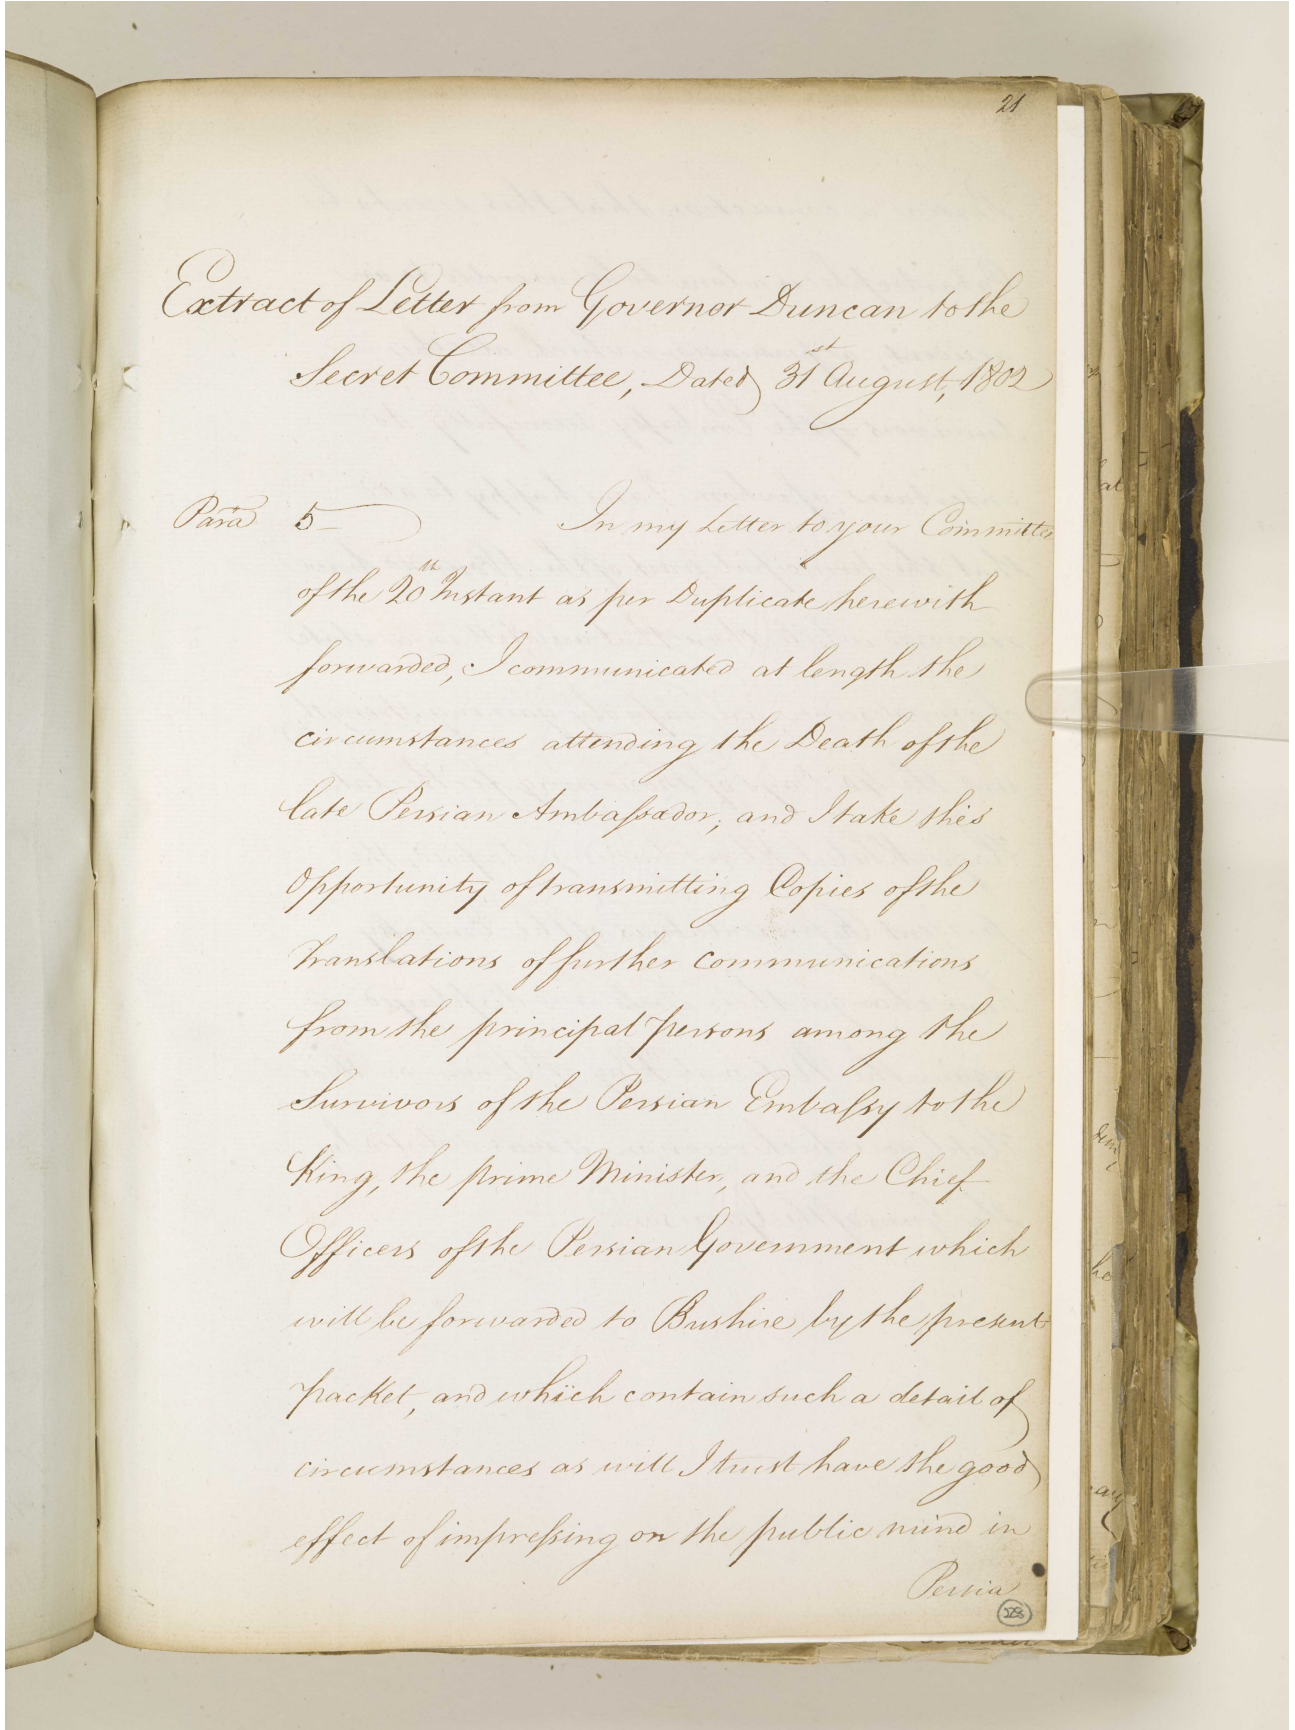 21
Extract of Letter from Governor Duncan to the
Secret Committee, Dated 31st August, 1802
Para 5 In my Letter to your Committee
of the 20th Instant as per Duplicate herewith
forwarded, I communicated at length the
circumstances attending the Death of the
late Persian Ambaſsador; and I take this
Opportunity of transmitting Copies of the
Translations of further communications
from the principal persons among the
Survivors of the Persian Embaſsy to the
King, the prime Minister, and the Chief
Officers of the Persian Government which
will be forwarded to Bushire by the present
packet, and which contain such a detail of
circumstances as will I trust have the good
effect of impreſsing on the public mind in
Persia